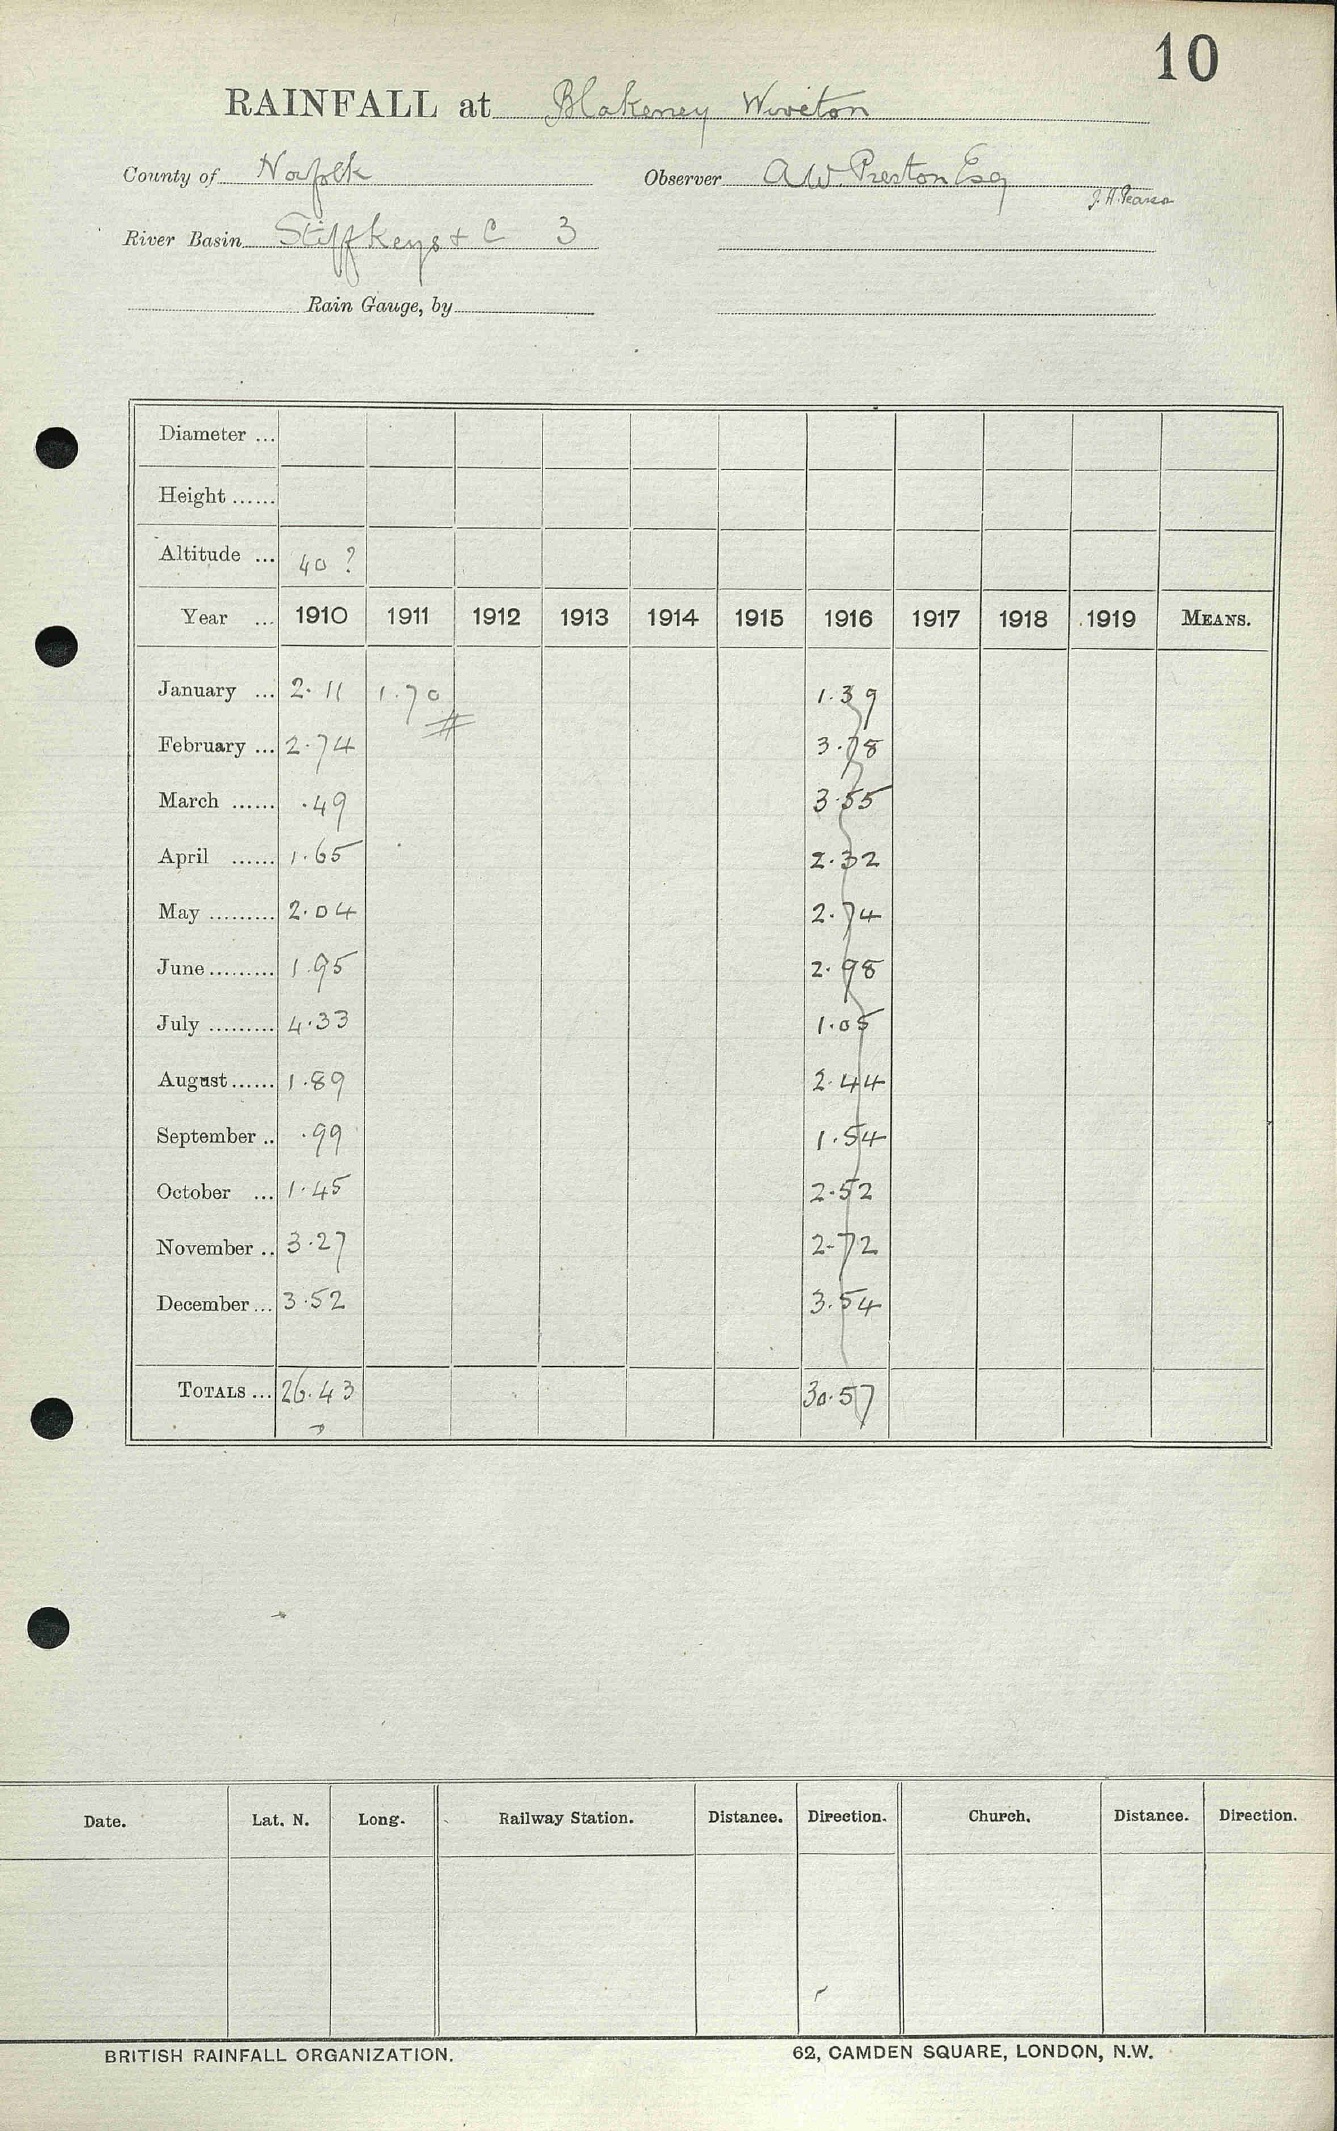 10
RAINFALL at Blakeney Wiveton
County of Norfolk Observer A.W. Preston Esq
J.H. Pearson
River Basin Stiffkey & C 3
Rain Gauge, by
Diameter ...
Height ......
Altitude ... 40 ?
Year ... 1910 1911 1912 1913 1914 1915 1916 1917 1918 1919 MEANS.
January ... 2.11 1.70 1.39
#
February ... 2.74 3.78
March ...... .49 3.55
April ...... 1.65 2.32
May ......... 2.04 2.74
June ......... 1.95 2.98
July ......... 4.33 1.05
August ...... 1.89 2.44
September .. .99 1.54
October ... 1.45 2.52
November .. 3.27 2.72
December ... 3.52 3.54
TOTALS ... 26.43 30.57
Date. Lat. N. Long. Railway Station. Distance. Direction. Church. Distance. Direction.
BRITISH RAINFALL ORGANIZATION. 62, CAMDEN SQUARE, LONDON, N.W.